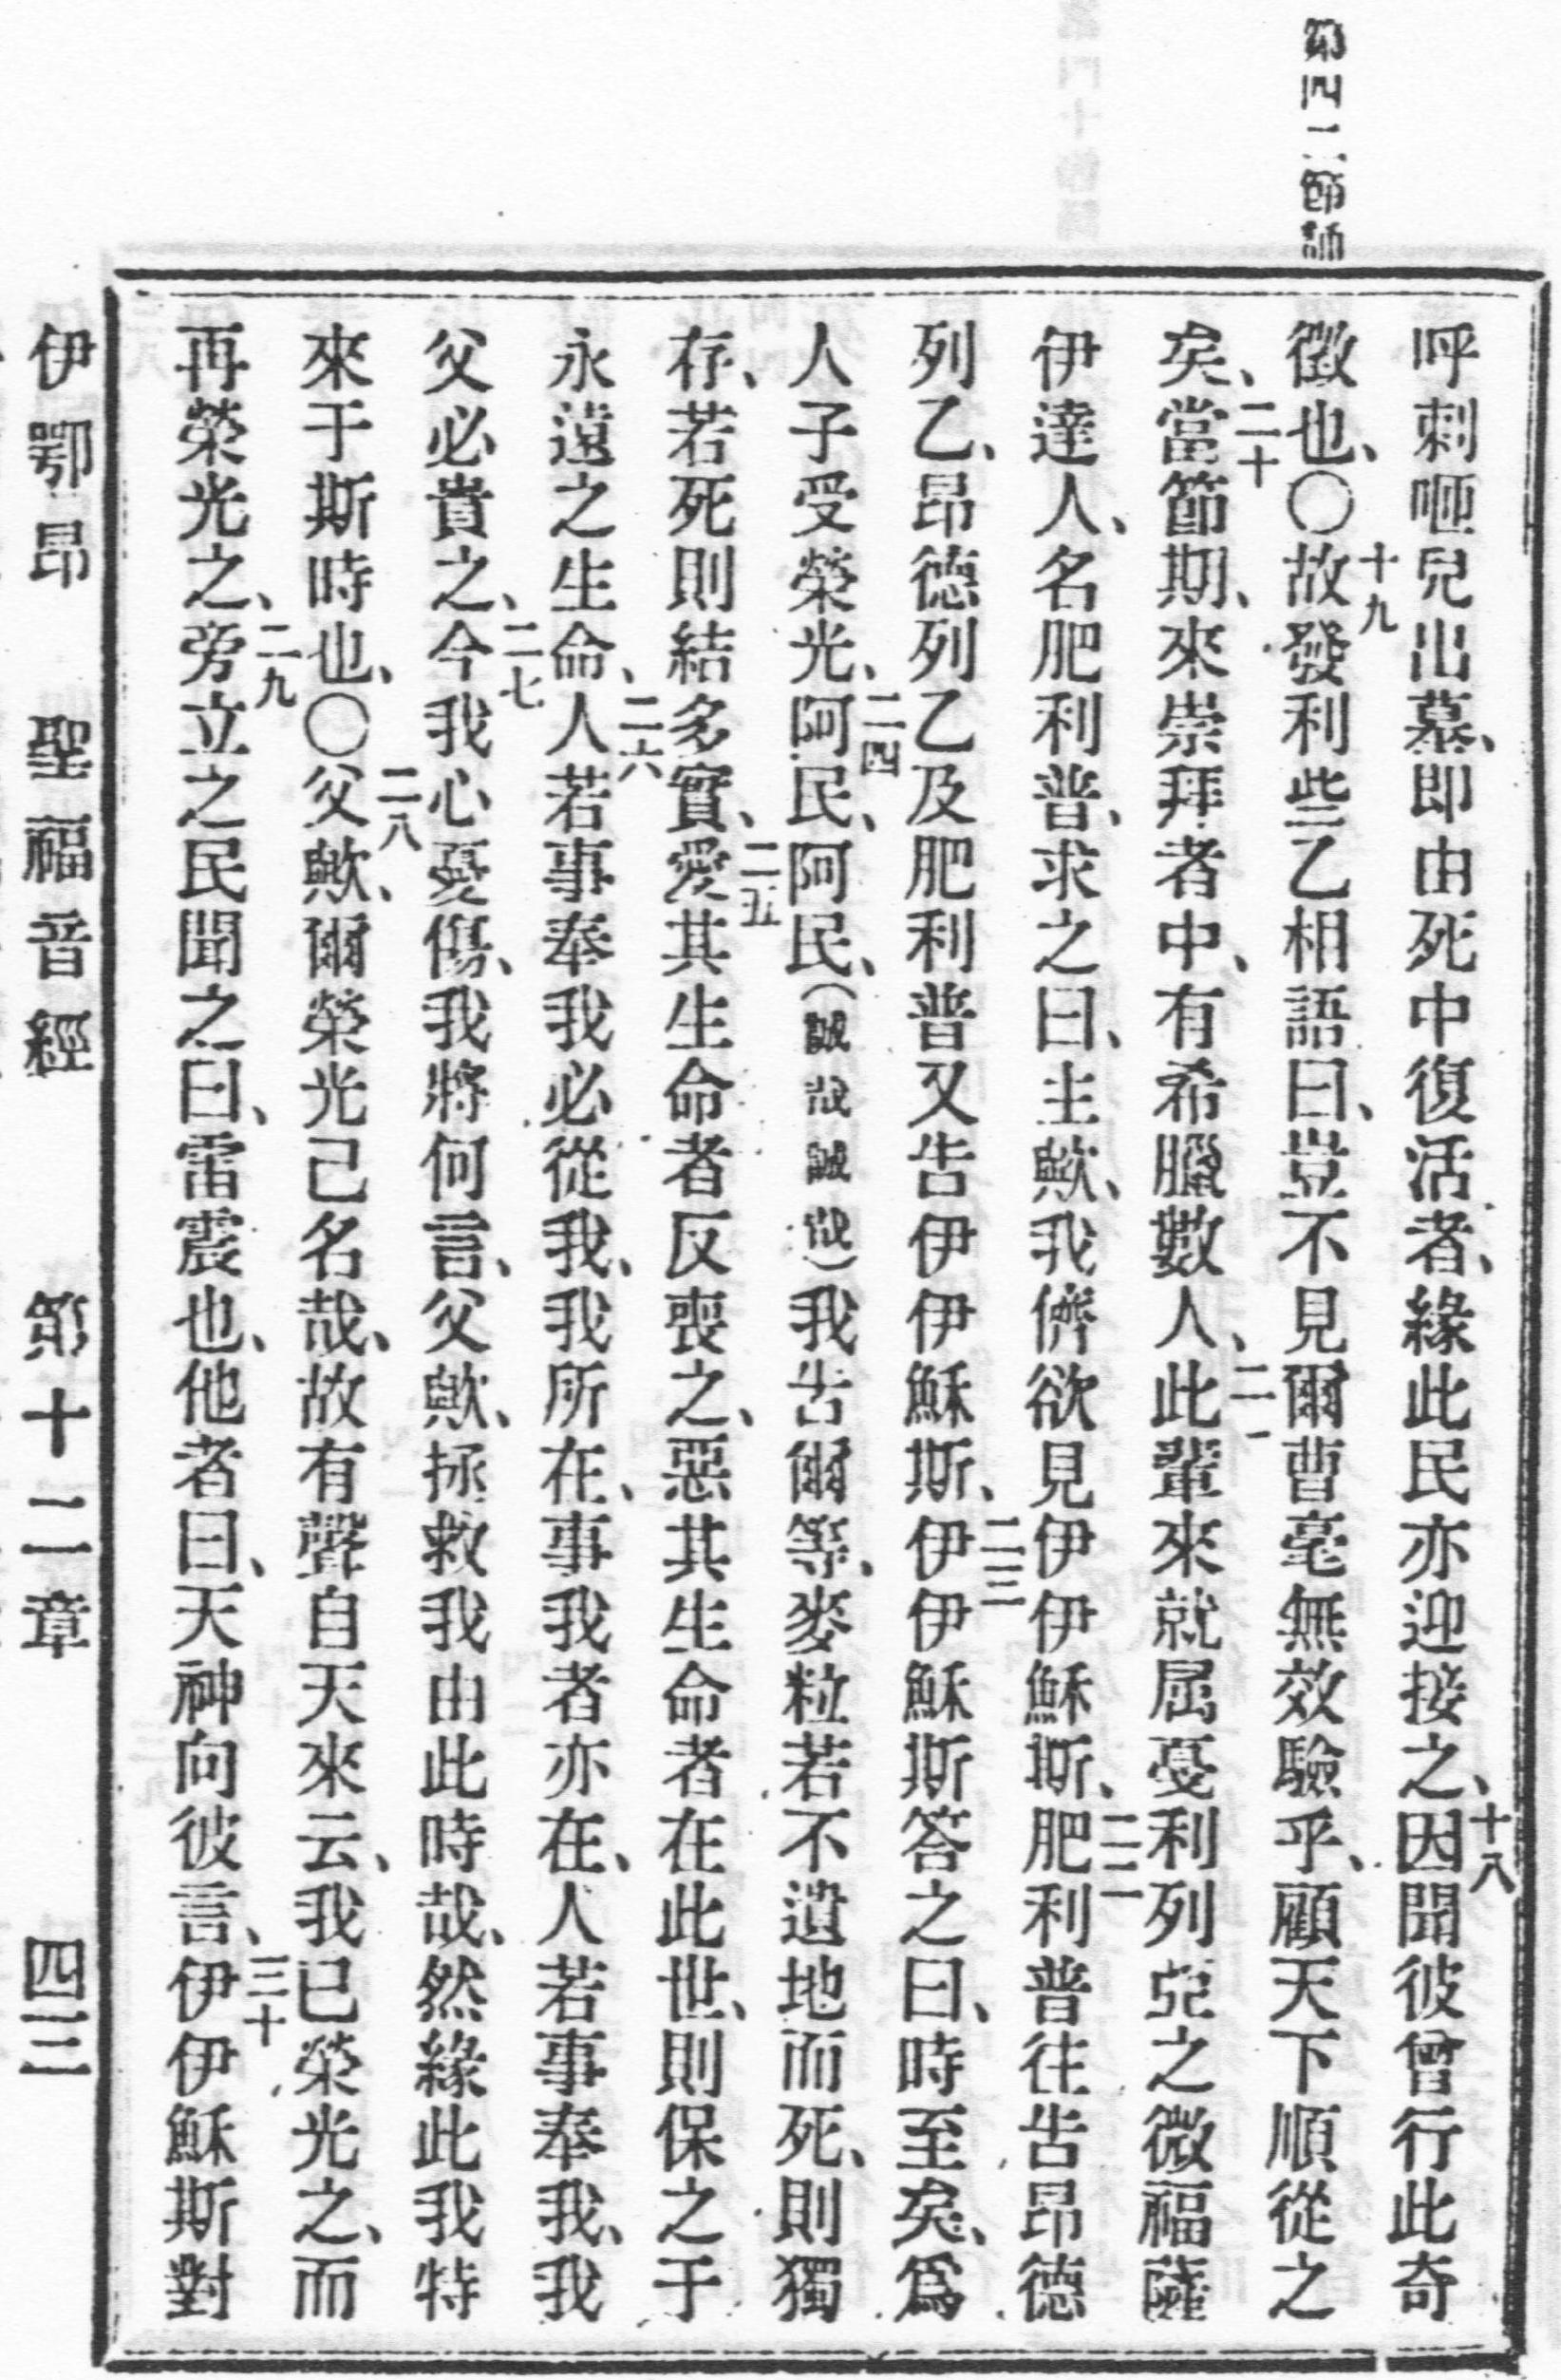 第四二節誦
呼刺咂兒出墓、即由死中復活者、緣此民亦迎接之、十八因聞彼曾行此奇
徵也、〇十九故發利些乙相語曰、豈不見爾曹毫無效驗乎、顧天下順從之
矣、二十當節期、來崇拜者中、有希臘數人、二一此輩來就屈憂利列亞之微福薩
伊達人、名肥利普、求之曰、主歟、我儕欲見伊伊穌斯、二二肥利普往告昂德
列乙、昂德列乙及肥利普又告伊伊穌斯、二三伊伊穌斯答之曰、時至矣、爲
人子受榮光、二四阿民、阿民、（誠哉誠哉）我告爾等、麥粒若不遺地而死、則獨
存、若死則結多實、二五愛其生命者反喪之、惡其生命者在此世、則保之于
永遠之生命、二六人若事奉我必從我、我所在、事我者亦在、人若事奉我、我
父必貴之、二七今我心憂傷、我將何言、父歟、拯救我由此時哉、然緣此我特
來于斯時也、〇二八父歟、爾榮光己名哉、故有聲自天來云、我已榮光之、而
再榮光之、二九旁立之民聞之曰、雷震也、他者曰、天神向彼言、三十伊伊穌斯對
伊鄂昂 聖福音經 第十二章 四三